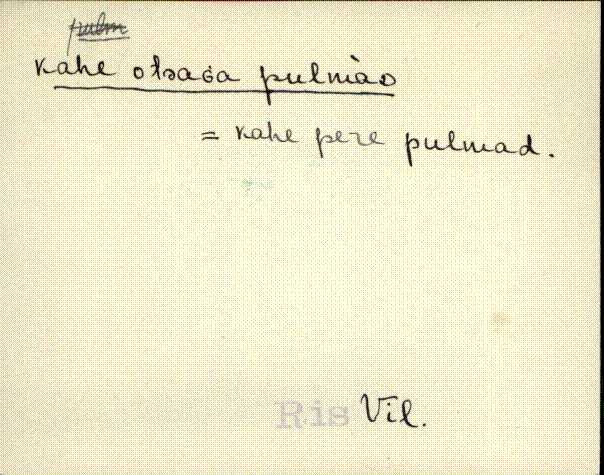 pulm
kahe otsaga pulmad
= kahe pere pulmad.
Ris Vil.